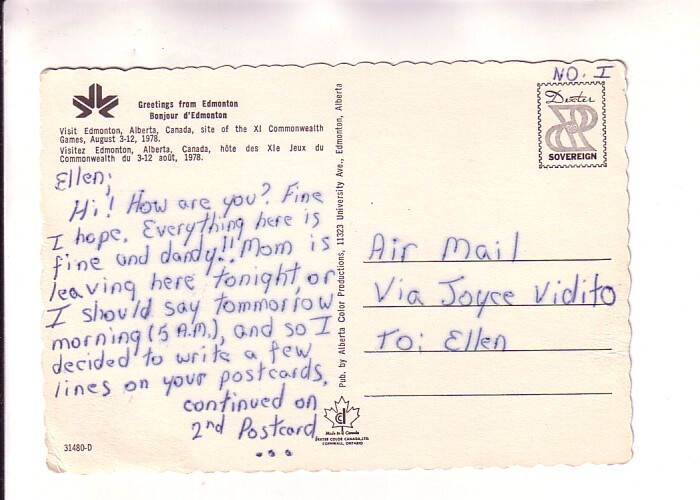 NO. I
Dexter
SOVEREIGN
Greetings from Edmonton
Bonjour d'Edmonton
Visit Edmonton, Alberta, Canada, site of the XI Commonwealth
Games, August 3-12, 1978.
Visitez Edmonton, Alberta, Canada, hôte des XIe Jeux du
Commonwealth du 3-12 août, 1978.
Ellen;
Hi! How are you? Fine
I hope. Everything here is
fine and dandy!! Mom is
leaving here tonight, or
I should say tommorrow
morning (5 A.M.), and so I
decided to write a few
lines on your postcards.
continued on
2nd Postcard
...
31480-D
Pub. by Alberta Color Productions, 11323 University Ave., Edmonton, Alberta
Made in Canada
DEXTER COLOR CANADA, LTD.
CORNWALL, ONTARIO
Air Mail
Via Joyce Vidito
To: Ellen